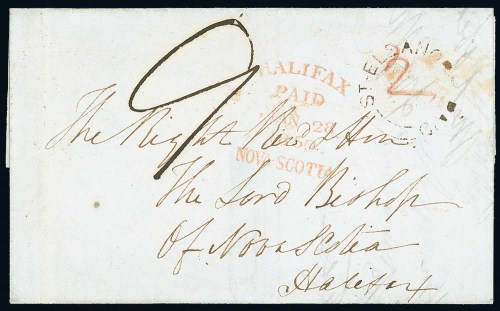 9
HALIFAX
PAID
28
NOVA SCOTIA
2
The Right Revd & Hon
The Lord Bishop
Of Nova Scotia
Halifax